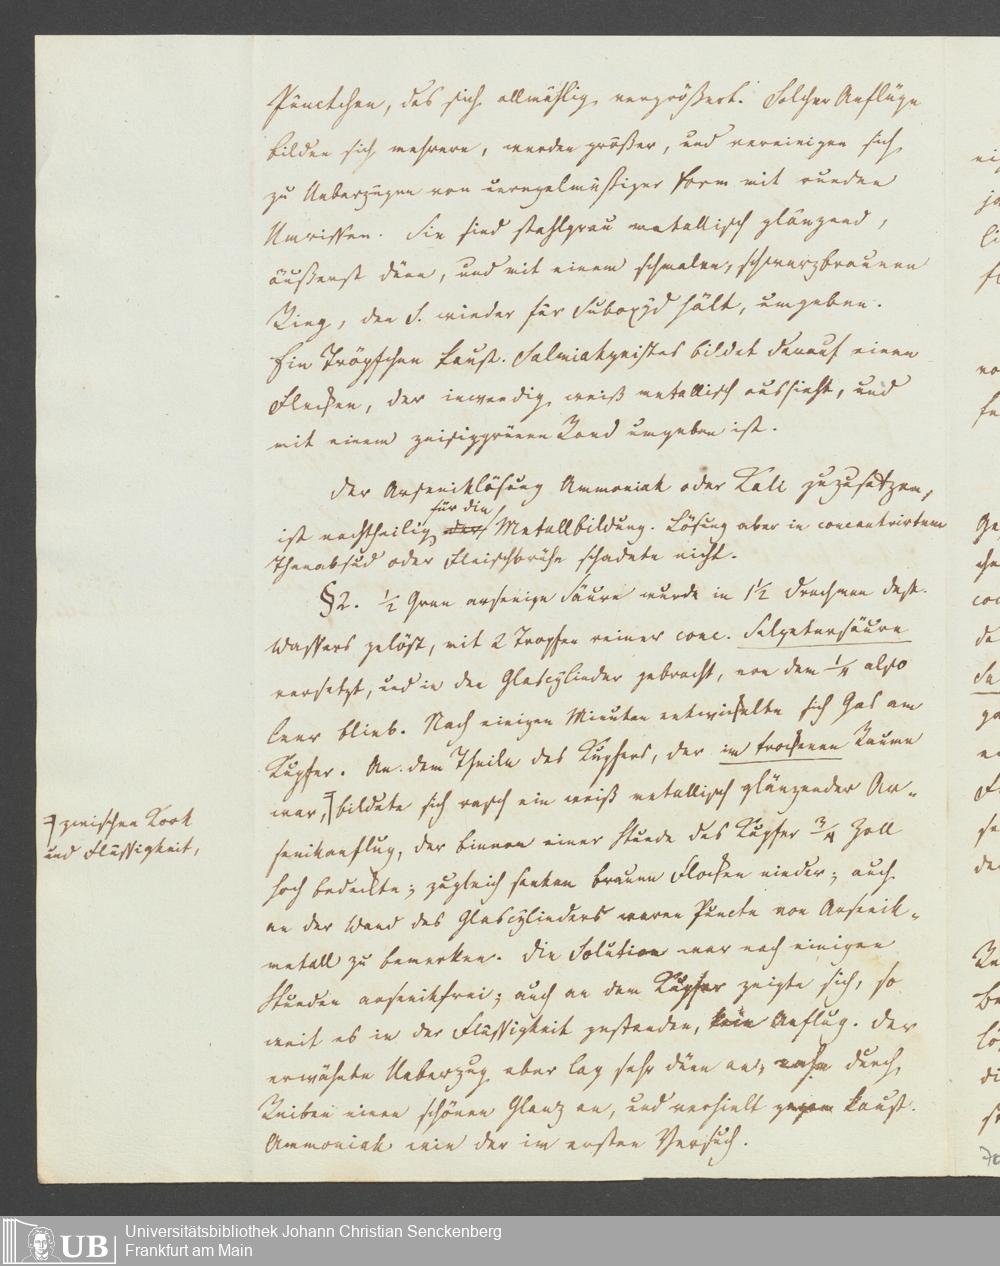 Pünctchen, das sich allmählig vergrößert. Solcher Anflüge
bilden sich mehrere, werden größer, und vereinigen sich
zu Ueberzügen von unregelmäßiger Form mit runden
Umrissen. Sie sind stahlgrau metallisch glänzend,
äußerst dünn, und mit einem schmalen, schwarzbraunen
Ring, den S. wieder für Suboxÿd hält, umgeben.
Ein Tröpfchen kaust. Salmiakgeistes bildet darauf einen
Flecken, der inwendig weiß metallisch aussieht, und
mit einem zeisiggrünen Rand umgeben ist.
Der Arseniklösung Ammoniak oder Kali zuzusetzen,
für die
ist nachtheilig der Metallbildung. Lösung aber in concentrirtem
Theeabsud oder Fleischbrühe schadete nicht.
§2. ½ Gran arsenige Säure wurde in 1½ Drachmen dest.
Wassers gelöst, mit 2 Tropfen reiner conc. Salpetersäure
versetzt, und in den Glascÿlinder gebracht, von dem ¼ also
leer blieb. Nach einigen Minuten entwickelte sich Gas am
Kupfer. An dem Theile des Kupfers, der im trockenen Raume
war, bildete sich rasch ein weiß metallisch glänzender Ar-
zwischen Kork
und Flüssigkeit,
senikanflug, der binnen einer Stunde das Kupfer ¾ Zoll
hoch bedeckte; zugleich sanken braune Flocken nieder; auch
an der Wand des Glascÿlinders waren Puncte von Arsenik-
metall zu bemerken. Die Solution war nach einigen
Stunden arsenikfrei; auch an dem Kupfer zeigte sich, so
weit es in der Flüssigkeit gestanden, kein Anflug. Der
erwähnte Ueberzug aber lag sehr dünn an, nahm durch
Reiben einen schönen Glanz an, und verhielt gegen kaust.
Ammoniak wie der im ersten Versuch.
Universitätsbibliothek Johann Christian Senckenberg
Frankfurt am Main
UB